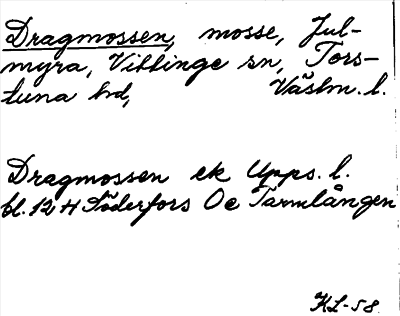 Dragmossen, mosse, Jul-
myra, Vittinge sn, Tors-
tuna hd, Västm. l.
Dragmossen ek Upps. l.
bl. 12 H Söderfors Oe Tarmlången
KL-58